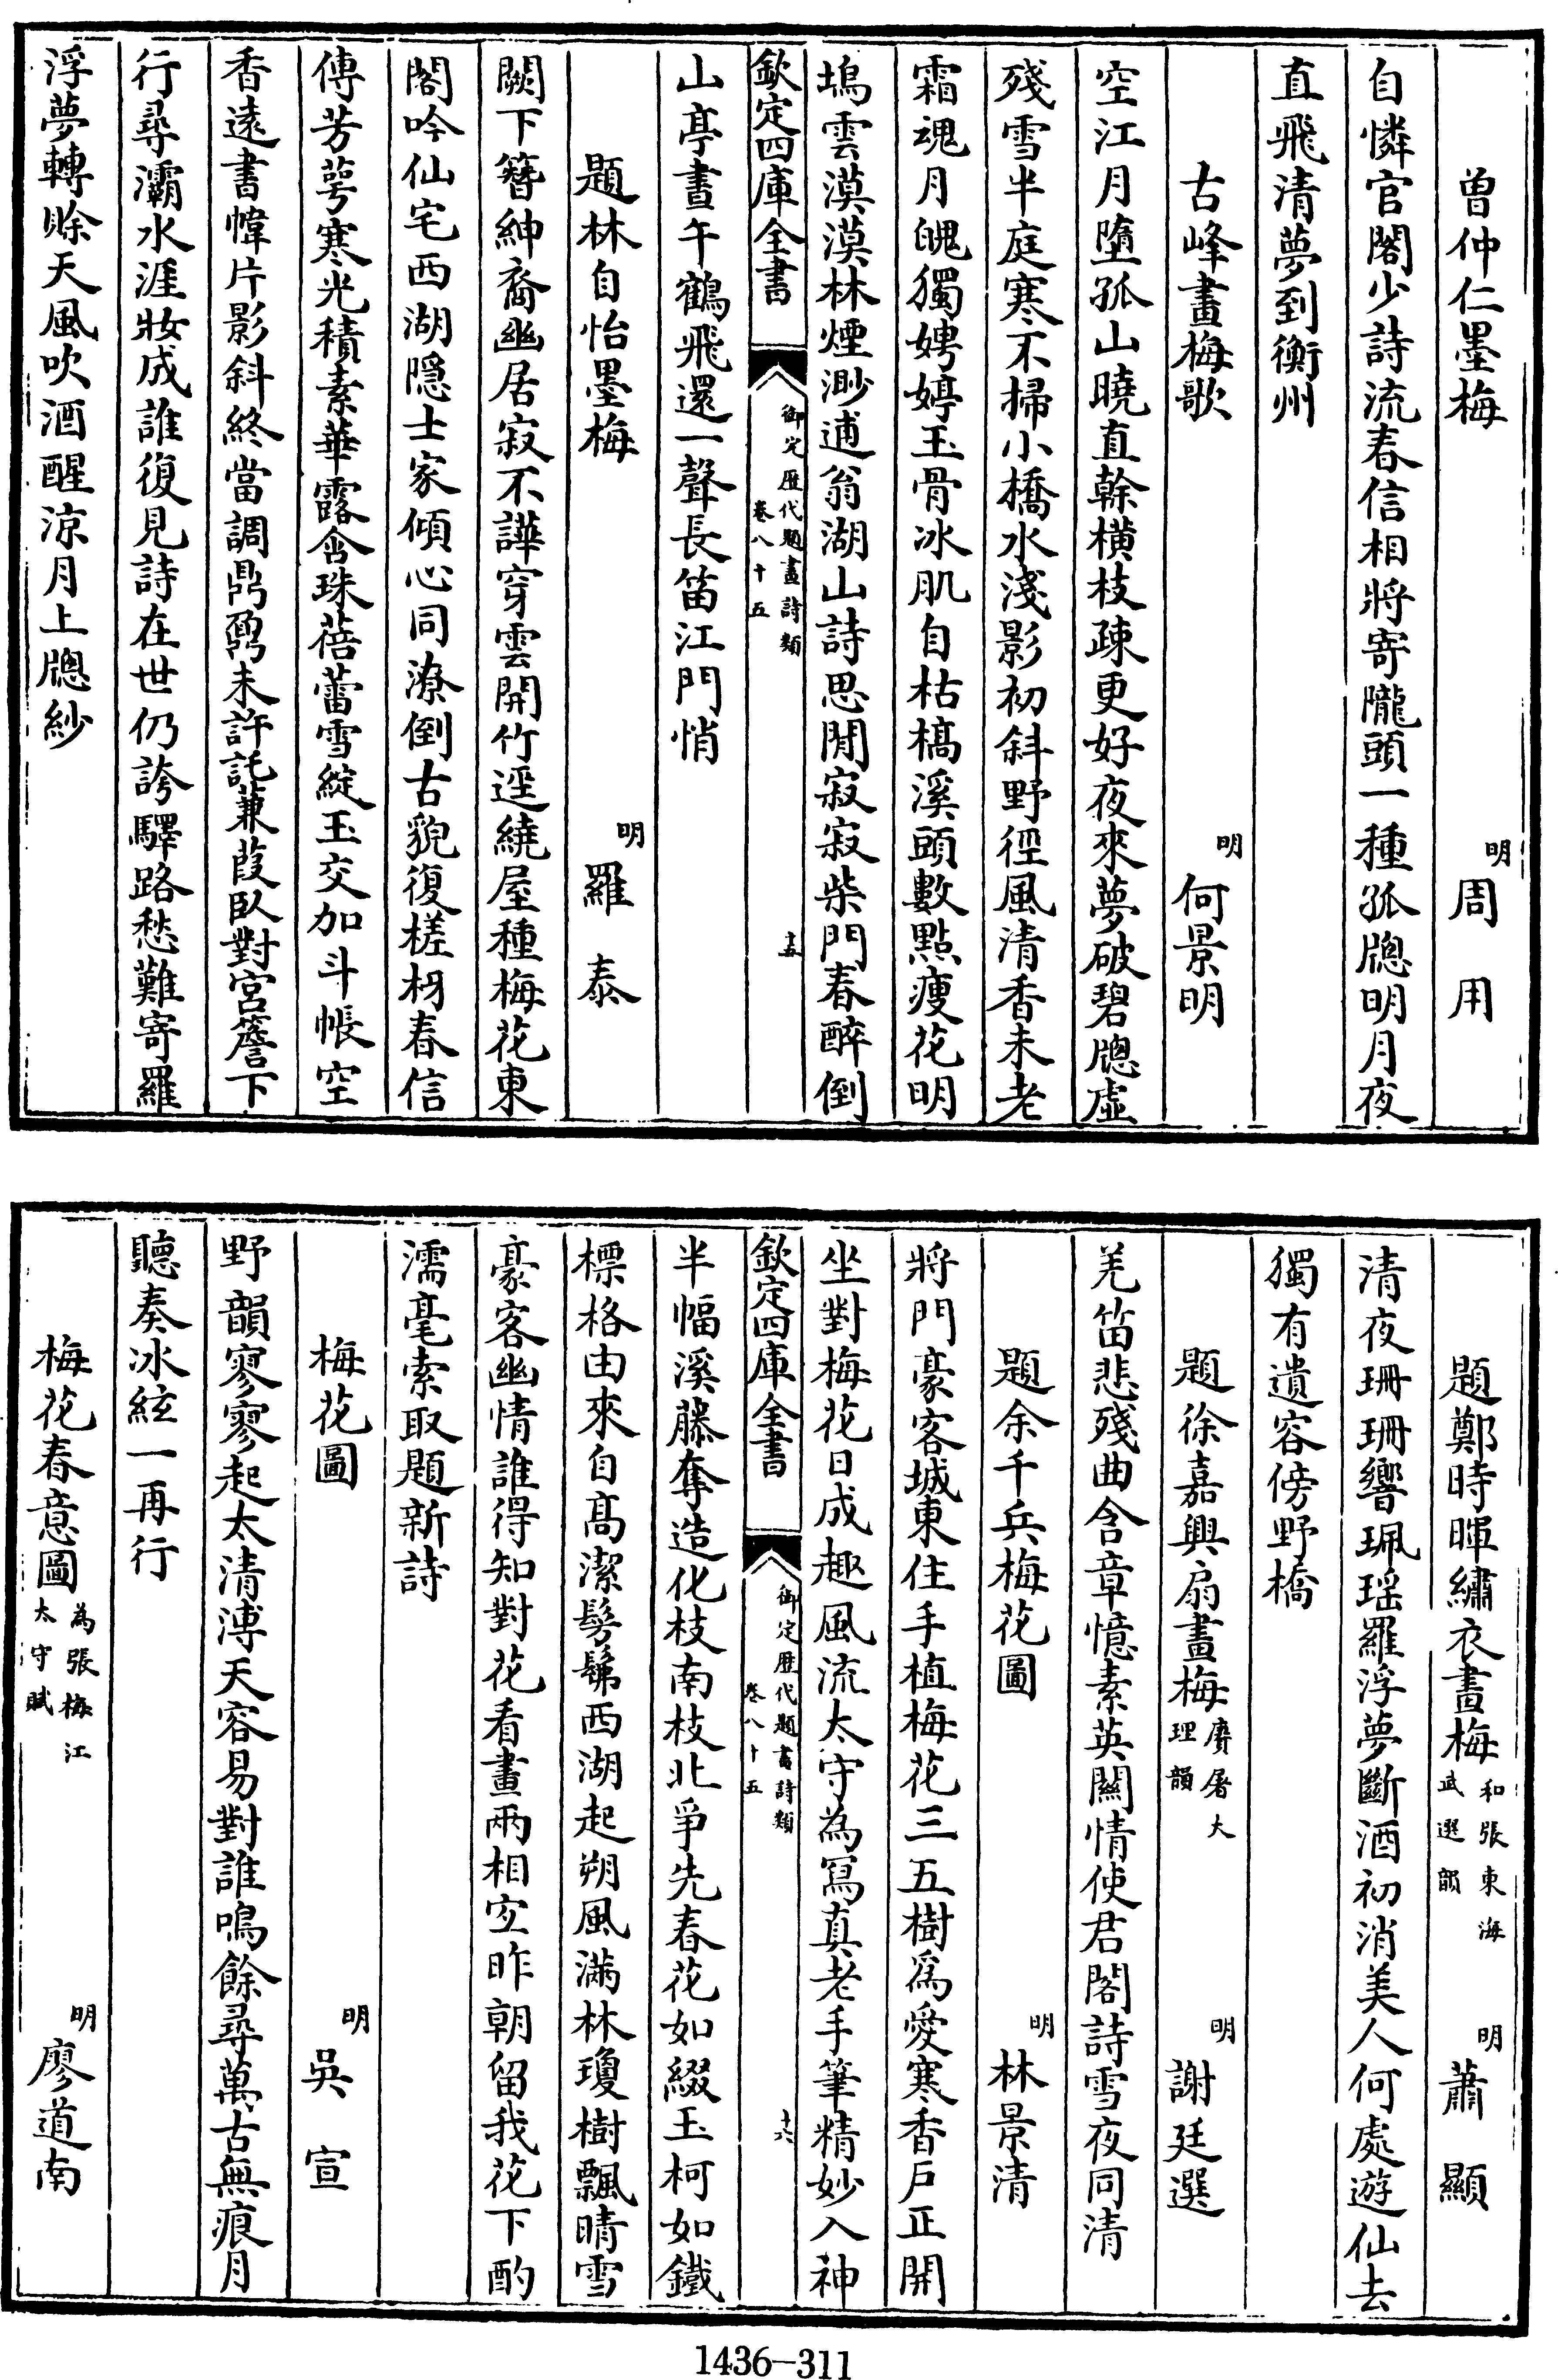 曾仲仁墨梅　明周用
自憐官閣少詩流春信相將寄隴頭一種孤牕明月夜
直飛清夢到衡州
古峰畫梅歌　明何景明
空江月墮孤山曉直幹横枝疎更好夜來夢破碧牕虚
殘雪半庭寒不掃小橋水淺影初斜野徑風清香未老
霜魂月魄獨娉婷玉骨冰肌自枯槁溪頭數點瘦花明
塢雲漠漠林煙渺逋翁湖山詩思閒寂寂柴門春醉倒
欽定四庫全書　御定歷代題畫詩類　卷八十五　十五
山亭晝午鶴飛還一聲長笛江門悄
題林自怡墨梅　明羅泰
闕下簪紳裔幽居寂不譁穿雲開竹逕繞屋種梅花東
閣吟仙宅西湖隱士家傾心同潦倒古貌復槎枒春信
傳芳萼寒光積素華露含珠蓓蕾雪綻玉交加斗帳空
香遠書幃片影斜終當調鼎鼐未許託蒹葭臥對宮簷下
行尋灞水涯妝成誰復見詩在世仍誇驛路愁難寄羅
浮夢轉賒天風吹酒醒涼月上牕紗
題鄭時暉繡衣畫梅　和張東海武選韻　明蕭顯
清夜珊珊響珮瑤羅浮夢斷酒初消美人何處遊仙去
獨有遺容傍野橋
題徐嘉興扇畫梅　賡屠大理韻　明謝廷選
羌笛悲殘曲含章憶素英關情使君閣詩雪夜同清
題余千兵梅花圖　明林景清
將門豪客城東住手植梅花三五樹爲愛寒香戶正開
坐對梅花日成趣風流太守為寫真老手筆精妙入神
欽定四庫全書　御定歷代題畫詩類　卷八十五　十六
半幅溪藤奪造化枝南枝北爭先春花如綴玉柯如鐵
標格由來自高潔髣髴西湖起朔風滿林瓊樹飄晴雪
豪客幽情誰得知對花看畫兩相宜昨朝留我花下酌
濡毫索取題新詩
梅花圖　明吳宣
野韻寥寥起太清溥天容易對誰鳴餘尋萬古無痕月
聽奏冰絃一再行
梅花春意圖　為張梅江太守賦　明廖道南
1436-311